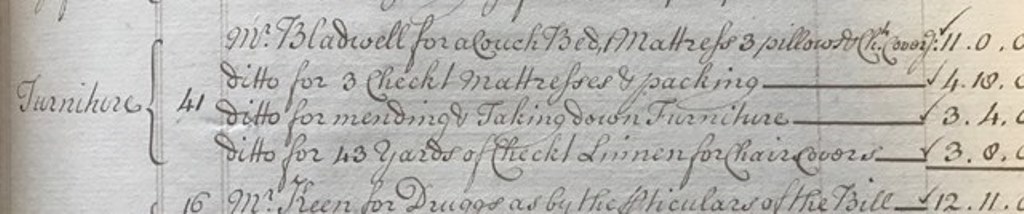 Mr. Bladwell for a Couch Bed, Mattress 3 pillows & Ck. Covers: 11.0.0
ditto for 3 Checkt Mattresses & packing 4.18.0
Furniture 41 ditto for mending & Taking down Furniture 3.4.0
ditto for 43 Yards of Checkt Linnen for Chair Covers 3.8.0
16 Mr. Keen for Druggs as by the pticulars of the Bill 12.11.0